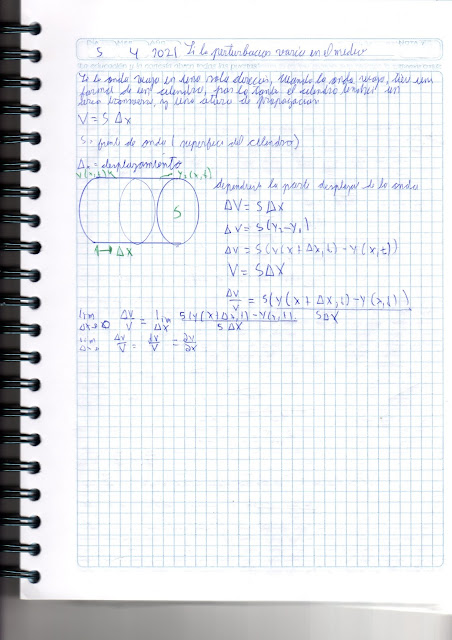 5 4 2021 Si la perturbacion varia en el medio
Si la onda viaja en una sola dirección, cuando la onda viaja, tiene una
forma de un cilindro, por lo tanto el cilindro tendra un
area transversal, y una altura de propagacion
V = S Δx
S = frente de onda ( superficie del cilindro)
Δx = desplazamiento
y(x,t)
y₂(x,t)
S
→ Δx
la parte desplaza de la onda
ΔV = SΔX
ΔV = S(y₂-y₁)
ΔV = S(y(x+Δx,t) - y(x,t))
V = SΔX
ΔV/V = S(y(x+Δx,t) - y(x,t)) / SΔX
lim Δx→0 ΔV/V = lim Δx S(y(x+Δx,t) - y(x,t)) / SΔX
lim Δx→0 ΔV/V = dV/V = ∂y/∂x